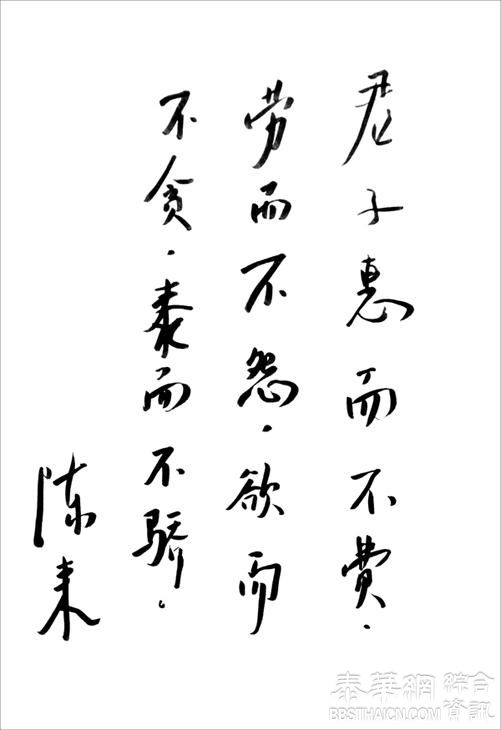 君子惠而不费.
劳而不怨.欲而
不贪.泰而不骄.
陈来
泰華網 綜合
BBSTHAICN.COM 資訊